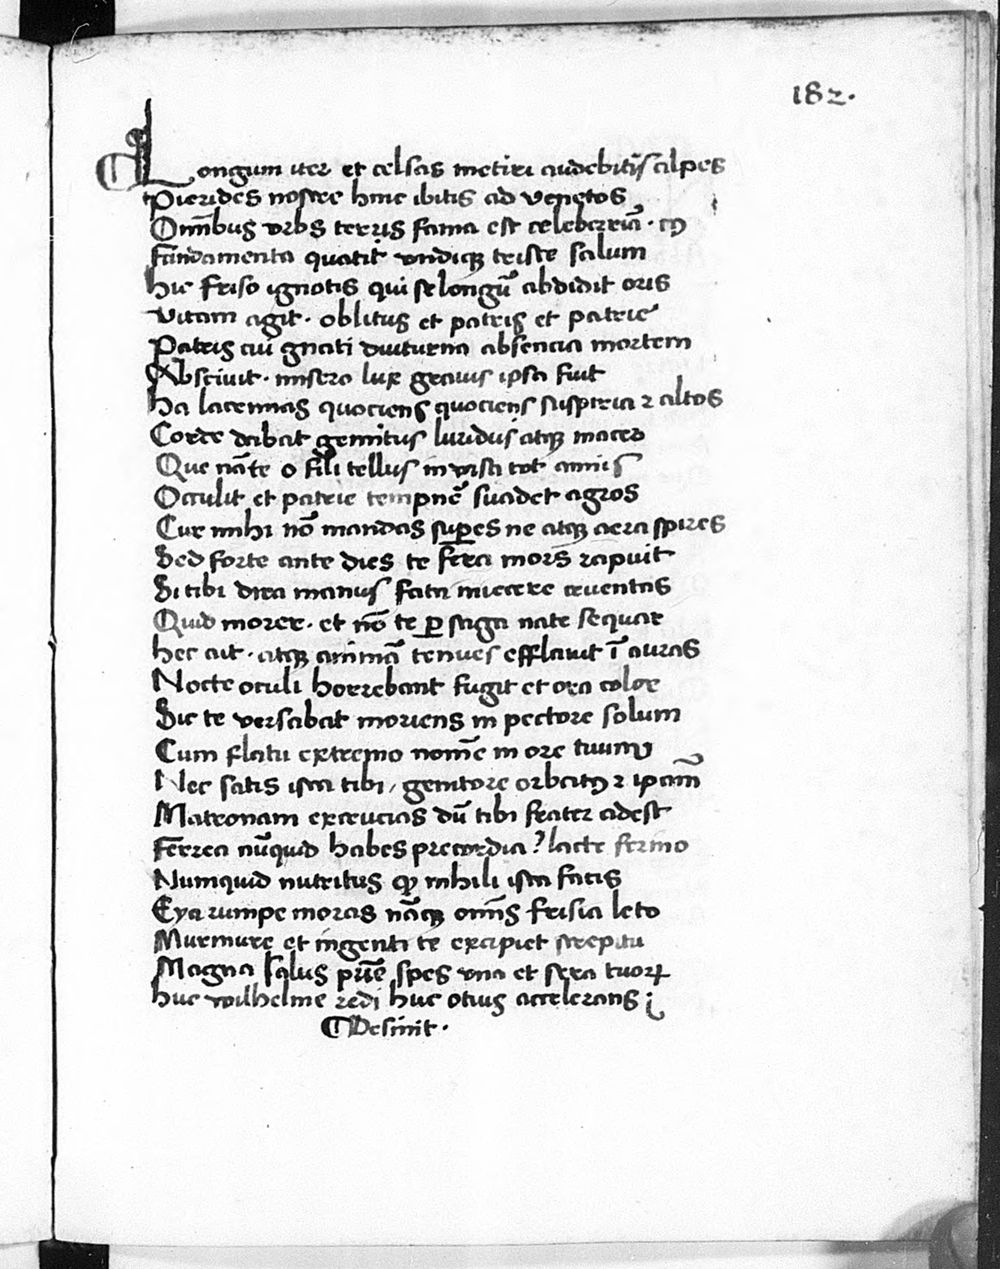 182.
Longum iter et celsas metiri audebitis alpes
Pierides nostre hinc ibitis ad venetos
Om̄ibus vrbs terris fama est celeberrīa · cū
Fundamenta quatit vndiqꝫ triste salum
hic friso ignotis qui se longū abdidit oris
vitam agit · oblitus et patris et patrie
Patris cui gnati diuturna absencia mortem
Absciuit · misero lux grauis ipsa fuit
ha lacrimas quociens quociens suspiria ⁊ altos
Corde dabat gemitus luridus atqꝫ macer
Que nāte o fili tellus in visa tot annis
Occulit et patrie tempnē suadet agros
Cur mihi nō mandas suꝑes ne atqꝫ aera spires
Sed forte ante dies te fera mors rapuit
Si tibi dira manus fata miscere cruentas
Quid moror · et nō te ꝑ stiga nate sequar
hec ait · atqꝫ animā tenues efflauit ī auras
Nocte oculi horrebant fugit et ora color
Sic te versabat moriens in pectore solum
Cum flatu extremo nomē in ore tuum
Nec satis ista tibi / genitore orbatꝰ ⁊ ip̄am
Matronam excrucias dū tibi frater adest
Ferrea nūquid habes precordia? lacte ferino
Numquid nutritus ꝙ nihili ista facis
Eya rumpe moras nāqꝫ om̄is frisia leto
Murmure et ingenti te excipiet strepitu
Magna salus prīe spes vna et sera tuoꝝ
huc wilhelme redi huc ocius accelerans
¶Desinit ·